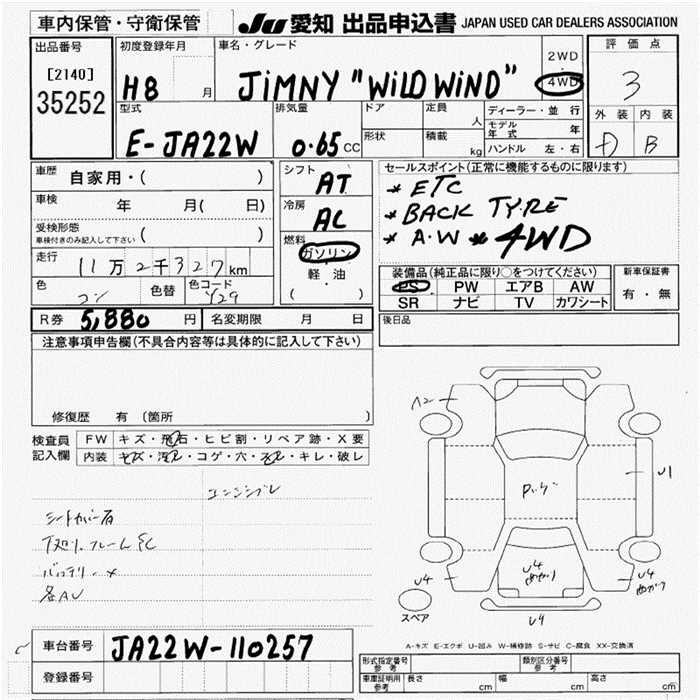 車内保管・守衛保管
JU 愛知 出品申込書 JAPAN USED CAR DEALERS ASSOCIATION
出品番号
[2140]
35252
初度登録年月
H8 月
車名・グレード
JiMNY "WiLD WiND"
2WD
・
4WD
評価点
3
外装 内装
D B
型式
E-JA22W
排気量
0.65 CC
ドア
形状
定員 人
積載 kg
ディーラー・並行
モデル年式 年
ハンドル 左・右
車歴 自家用・( )
車検 年 月( 日)
受検形態
車検付きのみ記入して下さい ( )
走行 11万2千327km
色 コン 色替 色コード Y29
シフト
AT
冷房
AC
燃料
ガソリン
軽・油
( )
セールスポイント(正常に機能するものに限ります)
* ETC
* BACK TYRE
* A・W * 4WD
装備品(純正品に限り○をつけてください)
PS PW エアB AW
SR ナビ TV カワシート
新車保証書
有・無
R券 5,880 円 名変期限 月 日
後日品
注意事項申告欄(不具合内容等は具体的に記入して下さい)
修復歴 有 (箇所 )
検査員
記入欄
FW キズ・飛石・ヒビ割・リペア跡・X要
内装 キズ・汚れ・コゲ・穴・スレ・キレ・破レ
エンジンブレ
シートカバー有
下廻り.フレームSC
バッテリー×
各AU
A2
U1
U4
U4
U4
U4
スペア
A-キズ E-エクボ U-凹み W-補修跡 S-サビ C-腐食 XX-交換済
車台番号 JA22W-110257
登録番号
形式指定番号
参考
類別区分番号
参考
車庫証明用
参考
長さ cm 幅 cm 高さ cm